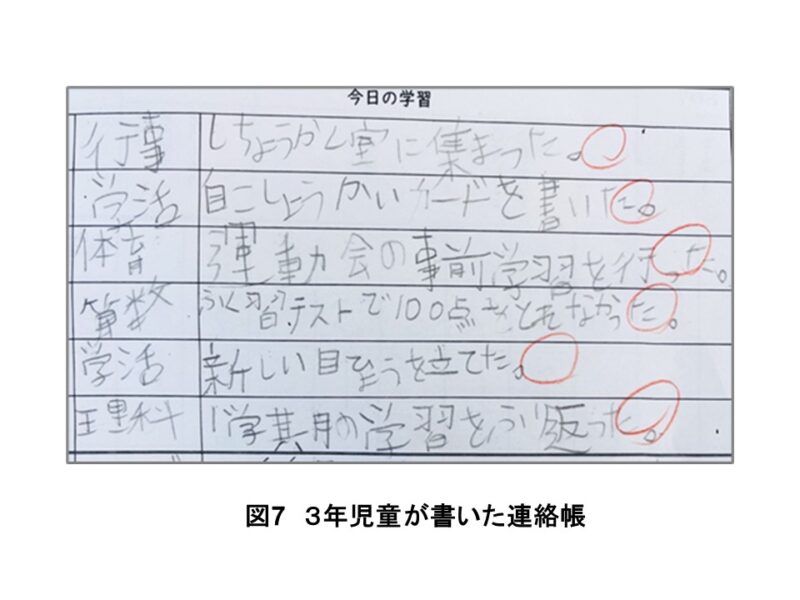 今日の学習
行事 しちょうかく室に集まった。
学活 自こしょうかいカードを書いた。
体育 運動会の事前学習を行った。
算数 ふく習テストで100点をとれなかった。
学活 新しい目ひょうを立てた。
理科 1学期の学習をふり返った。
図7 3年児童が書いた連絡帳